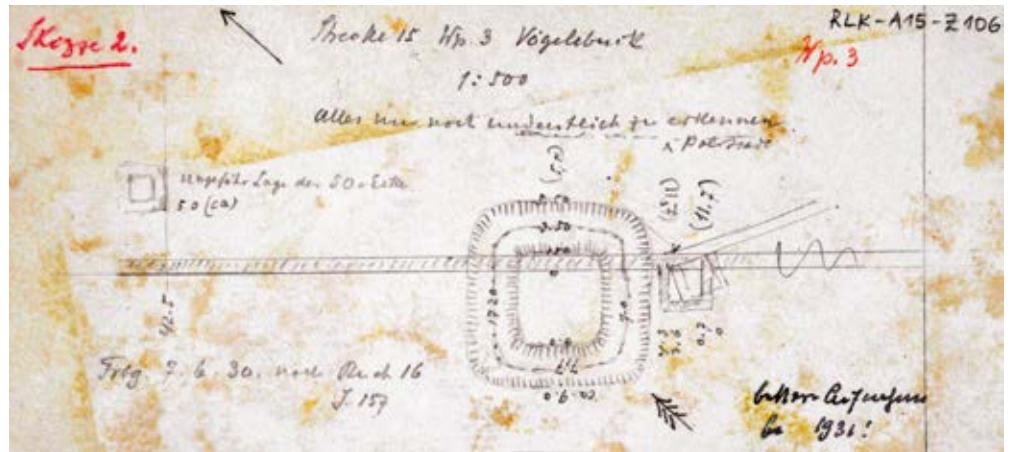 Skizze 2.
Strecke 15 Wp. 3 Vögelsbuck
RLK-A15-Z106
Wp. 3
1:500
Alles nur noch undeutlich zu erkennen
ungefähr Lage der SO-Ecke
50 (ca)
(11.7)
3.50
0
42.5
17.20
7.0
7.7
ca. 9.0
0.7
0
Frtg. 7. 6. 30. nach Buch 16
S. 157
bessere Aufnahme
1931!